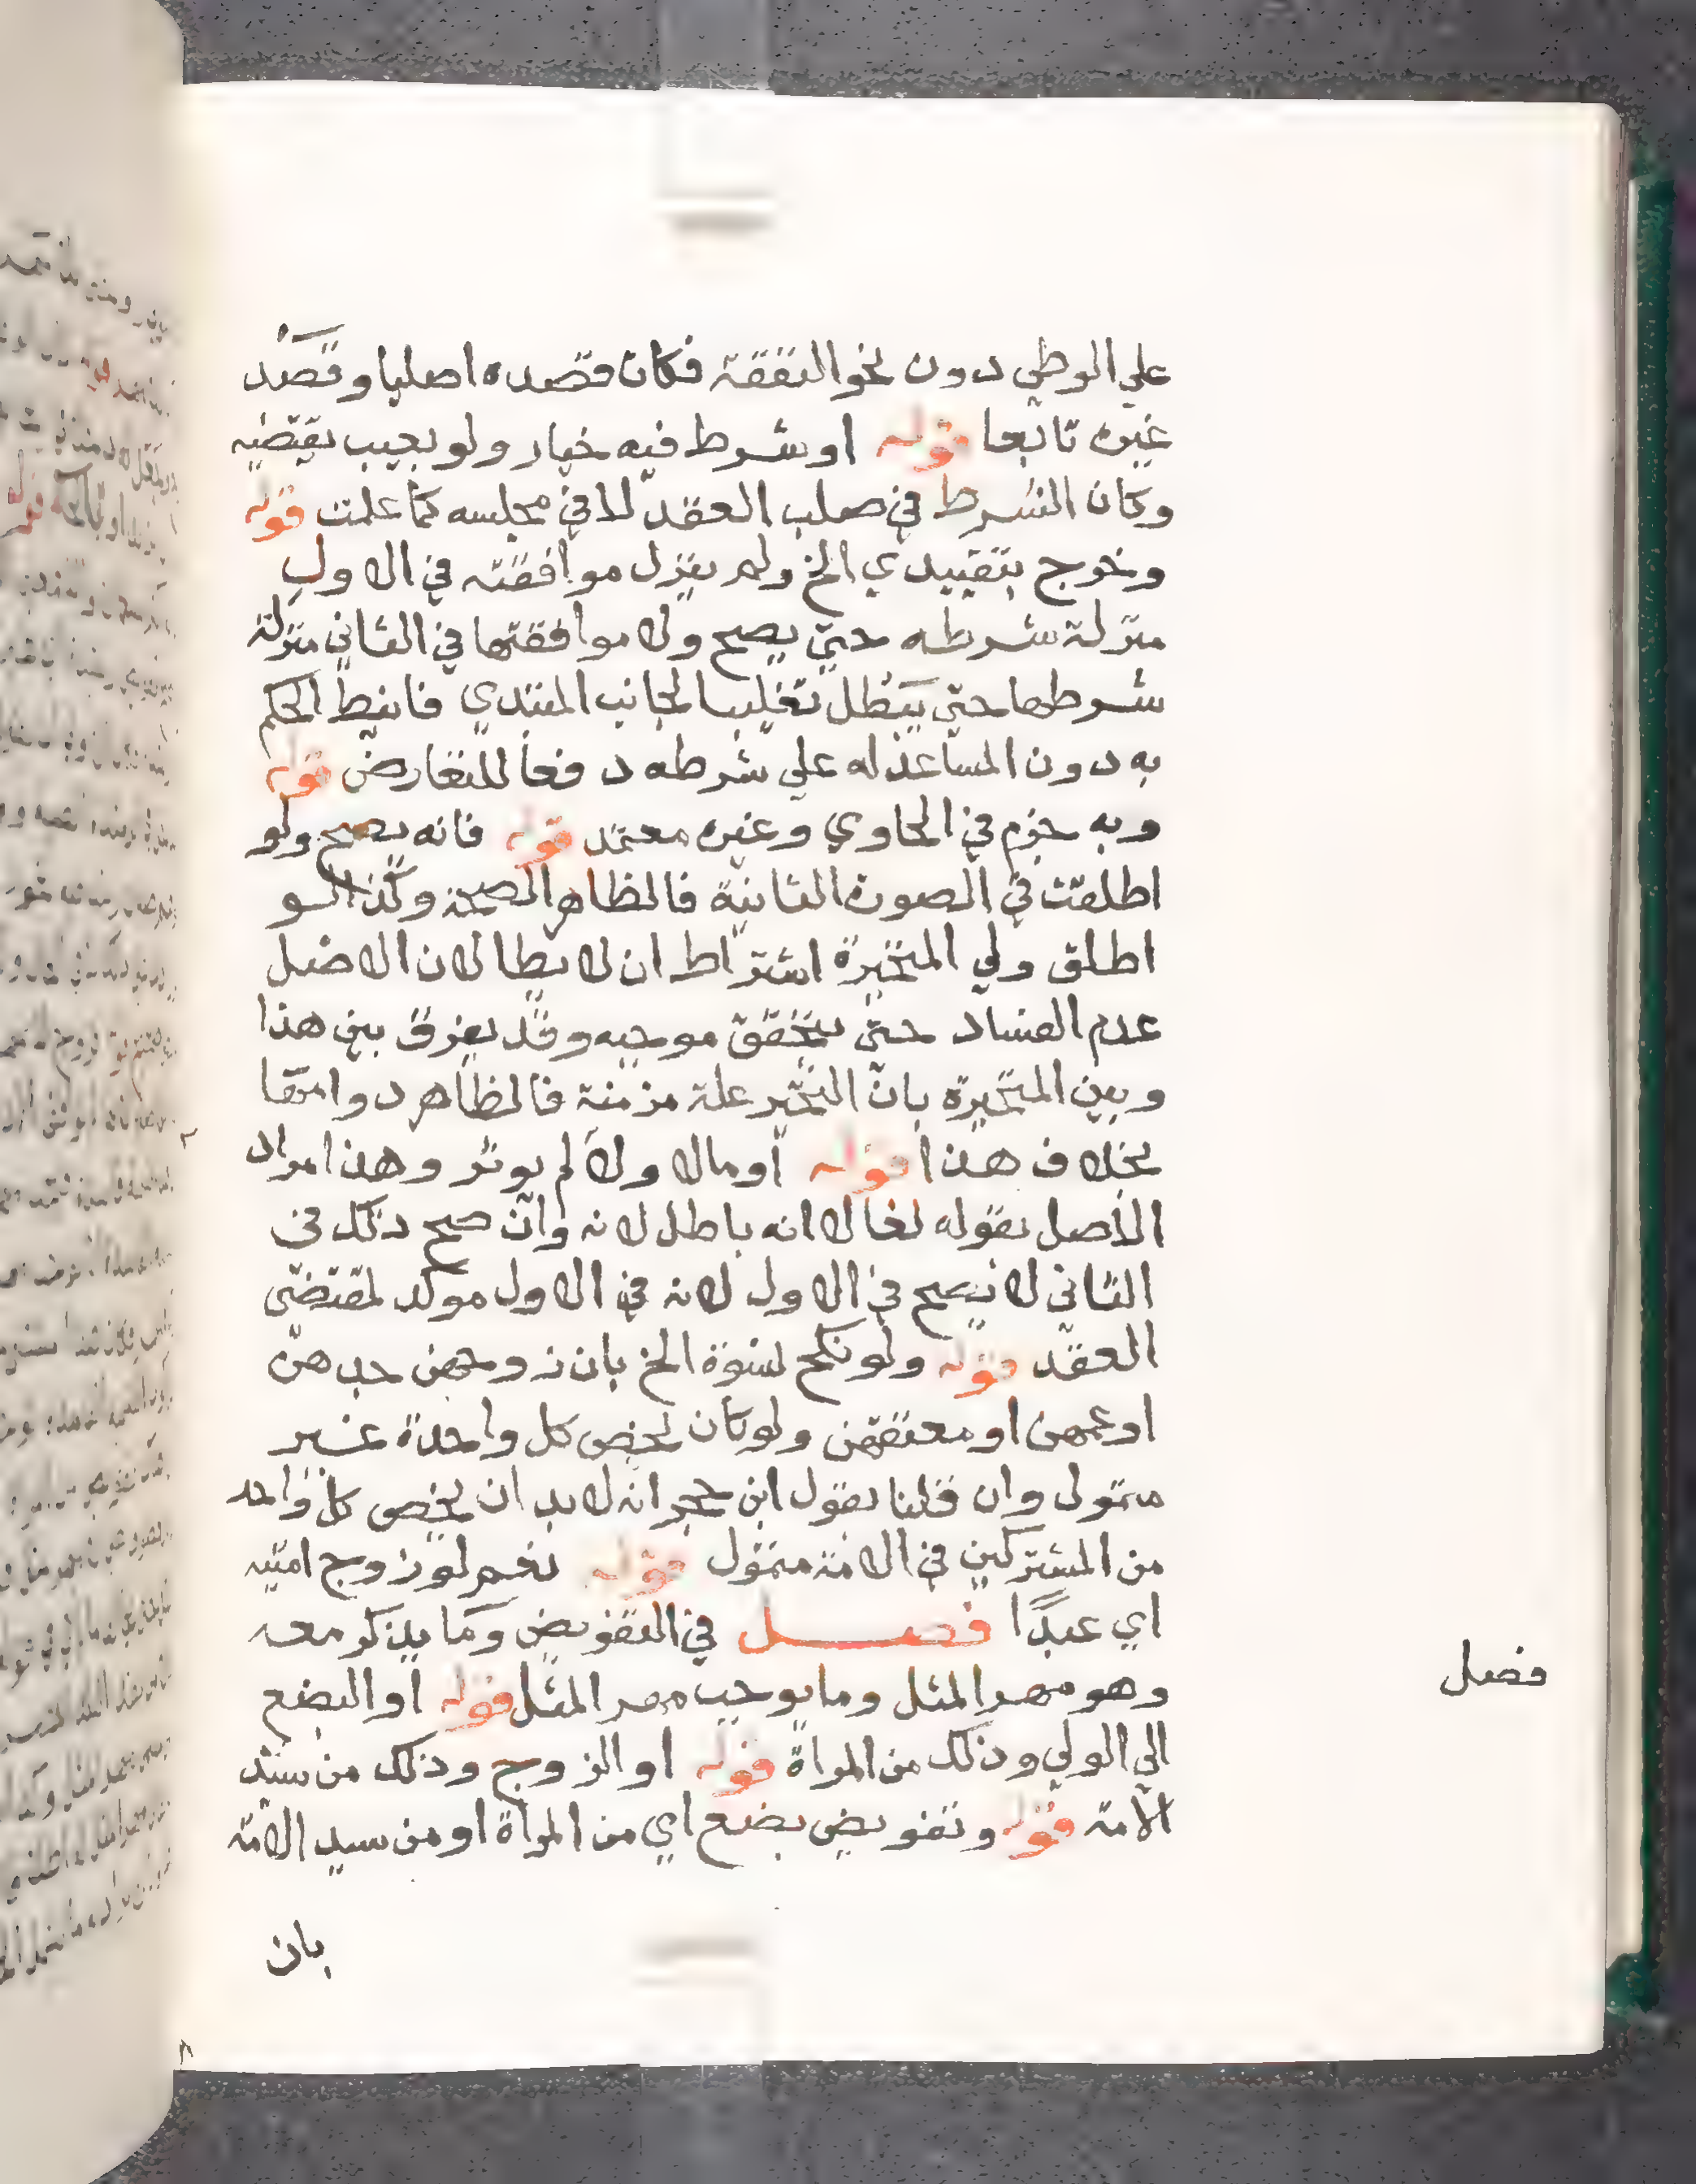 علي الوطي دون نحو النفقة فكان قصده اصليا وقصد
غيره تابعا قوله او شرط فيه خيار ولو بعيب يقتضيه
وكان الشرط في صلب العقد لا في مجلسه كما علمت قوله
وخرج بتقييدي الخ ولم ينزل موافقته في الاول
منزلة شرطه حتي يصح ولا موافقتها في الثاني منزلة
شرطها حتي يبطل تغليبا لجانب المبتدي فانيط الحكم
به دون المساعد له علي شرطه دفعا للتعارض قوله
وبه جزم في الحاوي وغيره معتمد قوله فانه يصح ولو
اطلقت في الصورة الثانية فالظاهر الصحة وكذا لو
اطلق ولي المتحيرة اشتراط ان لا يطا لان الاصل
عدم الفساد حتي يتحقق موجبه وقد يفرق بين هذا
وبين المتحيرة بان التحير علة مزمنة فالظاهر دوامها
بخلاف هذا قوله او مالا ولا لم يوثر وهذا مراد
الاصل بقوله لغا لا انه باطل لانه وان صح ذلك في
الثاني لا يصح في الاول لانه في الاول موكد لمقتضي
العقد قوله ولو نكح نسوة الخ بان زوجهن جدهن
او عمهن او معتقهن ولو كان يخص كل واحدة غير
متمول وان قلنا بقول ابن حجر انه لا بد ان يخص كل واحد
من المشتركين في الامة متمول قوله نعم لو زوج امتيه
اي عبدًا فصل في التفويض وما يذكر معه
وهو مهر المثل وما يوجب مهر المثل قوله او البضع
الي الولي وذلك من المراة قوله او الزوج وذلك من سيد
الامة قوله وتفويض بضع اي من المراة او من سيد الامة
بان
فصل